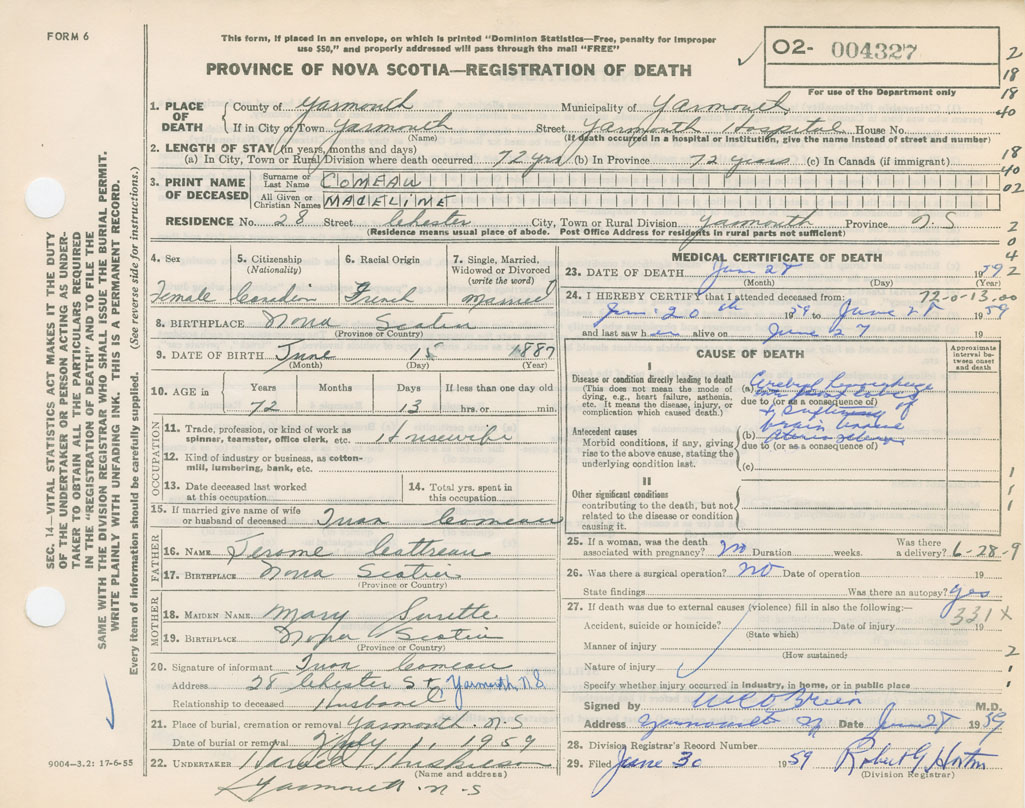 FORM 6
This form, if placed in an envelope, on which is printed "Dominion Statistics—Free, penalty for improper
use $50," and properly addressed will pass through the mail "FREE"
O2- 004327
For use of the Department only
PROVINCE OF NOVA SCOTIA—REGISTRATION OF DEATH
1. PLACE OF DEATH County of Yarmouth Municipality of Yarmouth
If in City or Town Yarmouth Street Yarmouth Hospital House No.
(Name) (If death occurred in a hospital or institution, give the name instead of street and number)
2. LENGTH OF STAY (in years, months and days)
(a) In City, Town or Rural Division where death occurred 72 yrs (b) In Province 72 years (c) In Canada (if immigrant)
3. PRINT NAME OF DECEASED Surname or Last Name COMEAU
All Given or Christian Names MADELINE
RESIDENCE No. 28 Street Chester City, Town or Rural Division Yarmouth Province N.S
(Residence means usual place of abode. Post Office Address for residents in rural parts not sufficient)
4. Sex 5. Citizenship (Nationality) 6. Racial Origin 7. Single, Married, Widowed or Divorced (write the word)
Female Canadian French Married
8. BIRTHPLACE Nova Scotia
(Province or Country)
9. DATE OF BIRTH June 15 1887
(Month) (Day) (Year)
10. AGE in Years Months Days If less than one day old
72 13 hrs. or min.
OCCUPATION
11. Trade, profession, or kind of work as spinner, teamster, office clerk, etc. Housewife
12. Kind of industry or business, as cotton-mill, lumbering, bank, etc.
13. Date deceased last worked at this occupation
14. Total yrs. spent in this occupation
15. If married give name of wife or husband of deceased Ivan Comeau
FATHER
16. NAME Jerome Cottreau
17. BIRTHPLACE Nova Scotia
(Province or Country)
MOTHER
18. MAIDEN NAME Mary Surette
19. BIRTHPLACE Nova Scotia
(Province or Country)
20. Signature of informant Ivan Comeau
Address 28 Chester St Yarmouth, N.S.
Relationship to deceased Husband
21. Place of burial, cremation or removal Yarmouth. N.S
Date of burial or removal July 1, 1959
22. UNDERTAKER Huskilson
(Name and address)
Yarmouth N.S
MEDICAL CERTIFICATE OF DEATH
23. DATE OF DEATH June 28 1959
(Month) (Day) (Year)
24. I HEREBY CERTIFY that I attended deceased from: 72-0-13.00
20th 1959 to June 28 1959
and last saw her alive on June 27
CAUSE OF DEATH
Approximate interval between onset and death
I
Disease or condition directly leading to death
(This does not mean the mode of dying, e.g., heart failure, asthenia, etc. It means the disease, injury, or complication which caused death.)
(a) Cerebral hemorrhage
due to (or as a consequence of)
of
brain
Antecedent causes
Morbid conditions, if any, giving rise to the above cause, stating the underlying condition last.
(b)
due to (or as a consequence of)
(c)
II
Other significant conditions
contributing to the death, but not related to the disease or condition causing it.
25. If a woman, was the death associated with pregnancy? No Duration weeks. Was there a delivery? 6-28-9
26. Was there a surgical operation? No Date of operation 19
State findings Was there an autopsy? yes
27. If death was due to external causes (violence) fill in also the following:— 331X
Accident, suicide or homicide? Date of injury 19
(State which)
Manner of injury
(How sustained)
Nature of injury
Specify whether injury occurred in industry, in home, or in public place
Signed by O'Brien M.D.
Address Yarmouth Date June 28 1959
28. Division Registrar's Record Number
29. Filed June 30 1959 Robert G Horton
(Division Registrar)
2
18
18
40
18
40
02
2
0
4
2
1
1
1
2
1
1
SEC. 14—VITAL STATISTICS ACT MAKES IT THE DUTY
OF THE UNDERTAKER OR PERSON ACTING AS UNDER-
TAKER TO OBTAIN ALL THE PARTICULARS REQUIRED
IN THE "REGISTRATION OF DEATH" AND TO FILE THE
SAME WITH THE DIVISION REGISTRAR WHO SHALL ISSUE THE BURIAL PERMIT.
WRITE PLAINLY WITH UNFADING INK. THIS IS A PERMANENT RECORD.
Every item of information should be carefully supplied. (See reverse side for instructions.)
9004—3.2: 17-6-55